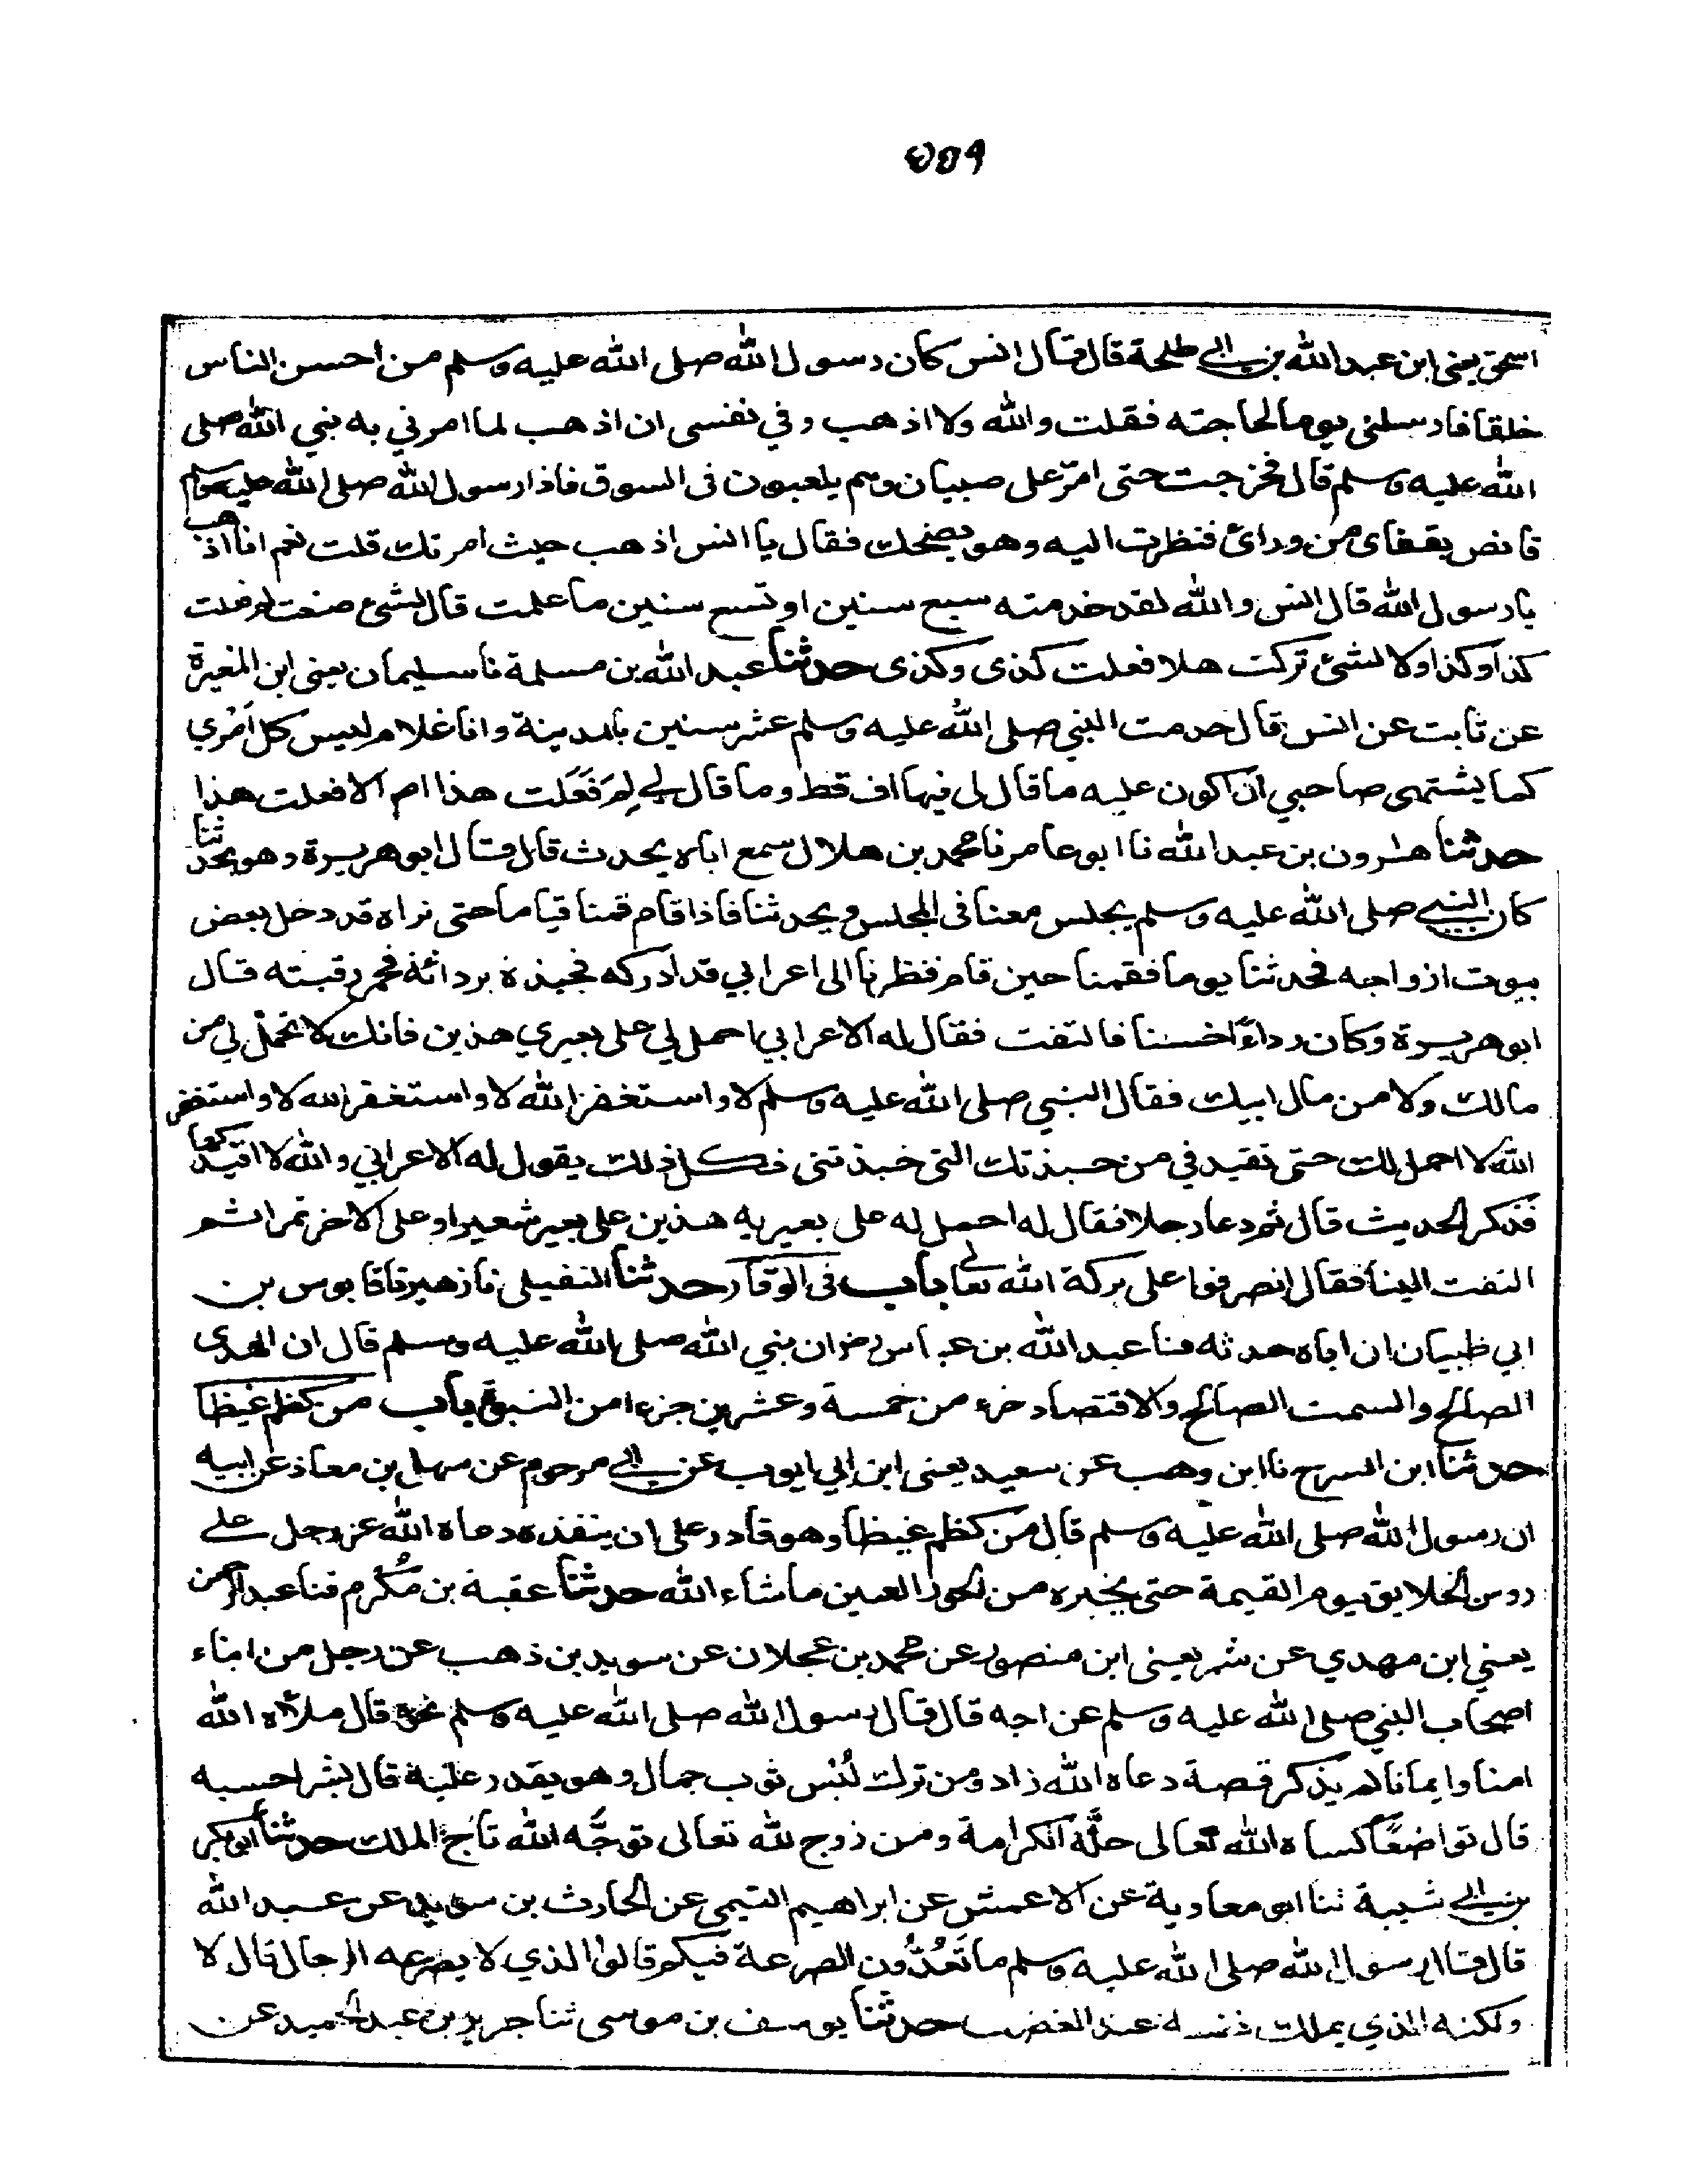 ٥٥٩
اسحق يعنى ابن عبد الله بن ابي طلحة قال قال انس كان رسول الله صلى الله عليه وسلم من احسن الناس
خلقا فارسلنى يوما لحاجته فقلت والله ولا اذهب وفي نفسى ان اذهب لما امرني به نبي الله صلى
الله عليه وسلم قال فخرجت حتى امرّ على صبيان وهم يلعبون فى السوق فاذا رسول الله صلى الله عليه وسلم
قابض بقفاى من ورائ فنظرت اليه وهو يضحك فقال يا انس اذهب حيث امرتك قلت نعم انا اذهب
يا رسول الله قال انس والله لقد خدمته سبع سنين او تسع سنين ما علمت قال لشئ صنعت لم فعلت
كذا وكذا ولا لشئ تركت هلا فعلت كذى وكذى حدثنا عبد الله بن مسلمة نا سليمان يعنى ابن المغيرة
عن ثابت عن انس قال خدمت النبي صلى الله عليه وسلم عشر سنين بالمدينة وانا غلام ليس كل امْري
كما يشتهى صاحبي ان اكون عليه ما قال لى فيها اف قط وما قال لي لِمَ فَعَلت هذا ام الا فعلت هذا
حدثنا هٰرون بن عبد الله نا ابو عامر نا محمد بن هلال سمع اباه يحدث قال قال ابو هريرة وهو يحدثنا
كان النبي صلى الله عليه وسلم يجلس معنا فى المجلس ويحدثنا فاذا قام قمنا قياما حتى نراه قد دخل بعض
بيوت ازواجه فحدثنا يوما فقمنا حين قام فنظرنا الى اعرابي قد ادركه فجبذة بردائة فحمر رقبته قال
ابو هريرة وكان رداءً اخشنا فالتفت فقال له الاعرابي احمل لي على بعيري هذين فانك لا تحمل لي من
مالك ولا من مال ابيك فقال النبي صلى الله عليه وسلم لا واستغفر الله لا واستغفر الله لا واستغفر
الله لا احمل لك حتى تقيدني من جبذتك التى جبذتنى فكل ذلك يقول له الاعرابي والله لا اقيدكها
فذكر الحديث قال ثم دعا رجلا فقال له احمل له على بعيريه هذين على بعير شعيرا وعلى الاخر تمرا ثم
التفت الينا فقال انصرفوا على بركة الله تعالى باب فى الوقار حدثنا النفيلى نا زهير نا قابوس بن
ابي ظبيان ان اباه حدثه ثنا عبد الله بن عباس رض ان نبي الله صلى الله عليه وسلم قال ان الهدى
الصالح والسمت الصالح والاقتصاد جزء من خمسة وعشرين جزءا من النبوة باب من كظم غيظا
حدثنا ابن السرح نا ابن وهب عن سعيد يعنى ابن ابي ايوب عن ابي مرحوم عن سهل بن معاذ عن ابيه
ان رسول الله صلى الله عليه وسلم قال من كظم غيظا وهو قادر على ان ينفذه دعاه الله عز وجل على
روس الخلايق يوم القيمة حتى يخيره من الحور العين ما شاء الله حدثنا عقبة بن مُكرم ثنا عبد الرحمن
يعني ابن مهدي عن بشر يعنى ابن منصور عن محمد بن عجلان عن سويد بن ذهب عن رجل من ابناء
اصحاب النبي صلى الله عليه وسلم عن ابيه قال قال رسول الله صلى الله عليه وسلم نحوه قال ملأه الله
امنا وايمانا لم يذكر قصة دعاه الله زاد ومن ترك لُبْس ثوب جمال وهو يقدر علية قال بشر احسبه
قال تواضعًا كساه الله تعالى حلَّة الكرامة ومن زوج لله تعالى توجّه الله تاج الملك حدثنا ابو بكر
بن ابي شيبة ثنا ابو معاوية عن الاعمش عن ابراهيم التيمى عن الحارث بن سويد عن عبد الله
قال قال رسول الله صلى الله عليه وسلم ما تَعُدُّون الصرعة فيكم قالوا الذي لا يصرعه الرجال قال لا
ولكنه الذي يملك نفسه عند الغضب حدثنا يوسف بن موسى ثنا جرير بن عبد الحميد عن